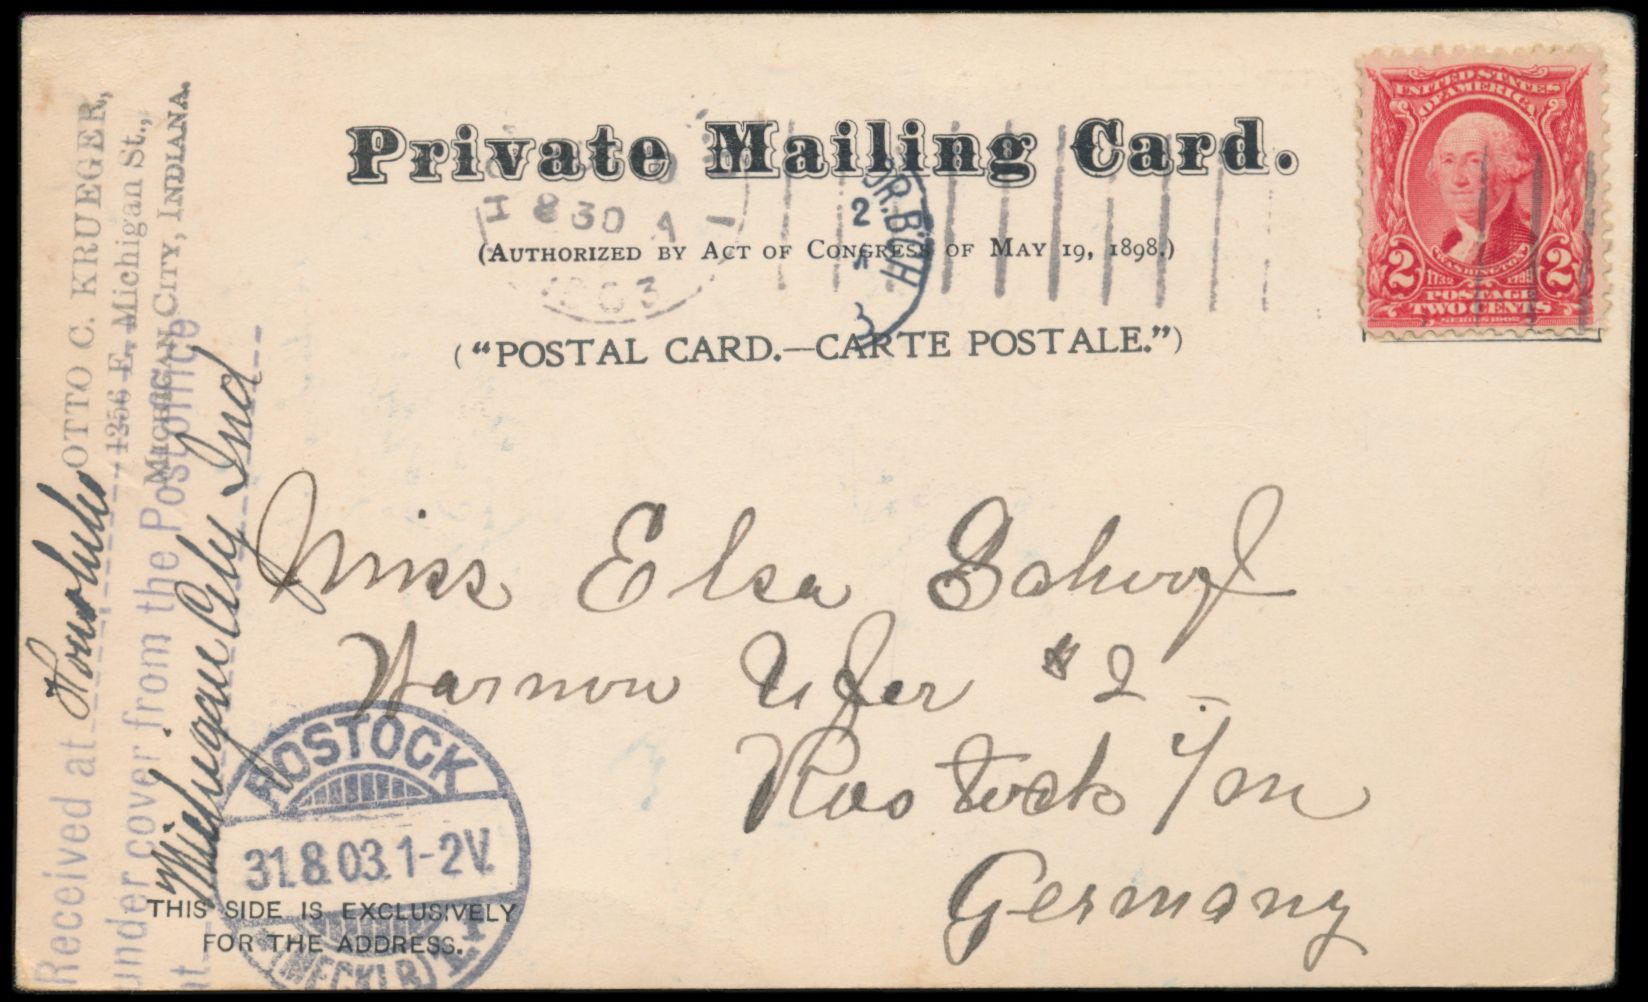 Private Mailing Card.
(AUTHORIZED BY ACT OF CONGRESS OF MAY 19, 1898.)
("POSTAL CARD.—CARTE POSTALE.")
UNITED STATES
OF AMERICA
WASHINGTON
1732 1799
2 2
POSTAGE
TWO CENTS
SERIES 1902
8 30 A
1903
2
3
OTTO C. KRUEGER,
1256 E. Michigan St.,
MICHIGAN CITY, INDIANA.
Received at
under cover from the Post office
at
City Ind
Miss Elsa
Warnow Ufer # 2
Rostock i/m
Germany
ROSTOCK
31.8.03.1-2V.
(MECKLB)
THIS SIDE IS EXCLUSIVELY
FOR THE ADDRESS.